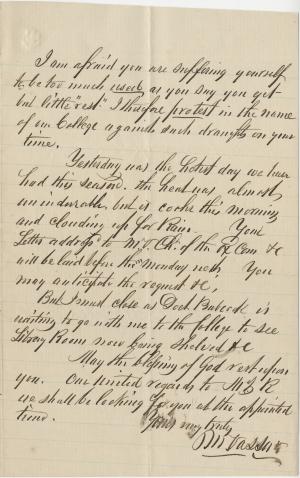 I am afraid you are suffering yourself
to be too much used as you say you get
but little "rest". I therefore protest in the name
of our College against such draughts on your
time.
Yesterday was the hotest day we have
had this season. the heat was almost
unindurable, but is cooler this morning
and clouding up for Rain. Your
Letter address to M. V. CK. of the Ex Com &c
will be laid before them monday next, You
may anticipate the request &c,
But I must close as Doct Babcock is
waiting to go with me to the College to see
Library Room now being shelved &c
May the blessing of God rest upon
you. Our united regards to Mrs R
we shall be looking for you at the appointed
time.
Yours very truly
M Vassar